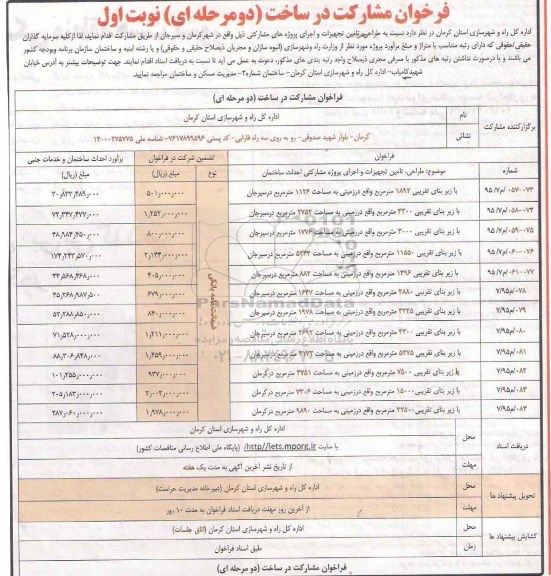 فراخوان مشارکت در ساخت (دو مرحله ای) نوبت اول
اداره کل راه و شهرسازی استان کرمان در نظر دارد نسبت به طراحی، تامین تجهیزات و اجرای پروژه های مشارکتی ذیل واقع در شهر کرمان و سیرجان از طریق مشارکت اقدام نماید، لذا از کلیه سرمایه گذاران
حقیقی/حقوقی که دارای رتبه متناسب با متراژ و مبلغ برآورد پروژه مورد نظر از وزارت راه وشهرسازی (انبوه سازان و مجریان ذیصلاح حقیقی و حقوقی) و یا رشته ابنیه و ساختمان سازمان برنامه وبودجه کشور
می باشند و یا درصورت نداشتن رتبه های مذکور با معرفی مجری ذیصلاح واجد رتبه بندی های مذکور، دعوت به عمل می آید تا نسبت به دریافت اسناد اقدام نمایند. جهت توضیحات بیشتر به آدرس خیابان
شهید کامیاب- اداره کل راه و شهرسازی استان کرمان- ساختمان شماره ۲- مدیریت مسکن و ساختمان مراجعه نمایید.
فراخوان مشارکت در ساخت (دو مرحله ای)
برگزارکننده مشارکت
نام اداره کل راه و شهرسازی استان کرمان
نشانی کرمان- بلوار شهید صدوقی- رو به روی سه راه فارابی- کد پستی ۷۶۱۷۸۹۹۵۹۶- شناسه ملی ۱۴۰۰۰۲۷۵۷۷۵
شماره فراخوان تضمین شرکت در فراخوان برآورد احداث ساختمان و خدمات جنبی
موضوع: طراحی، تامین تجهیزات و اجرای پروژه مشارکتی احداث ساختمان نوع مبلغ (ریال) (ریال)
ضمانت نامه بانکی
۹۵/۷/م/۰۵۷-۰۷۳ با زیر بنای تقریبی ۱۸۹۲ مترمربع واقع درزمینی به مساحت ۱۱۲۶ مترمربع درسیرجان ۵۰۱٫۰۰۰٫۰۰۰ ۳۰٫۸۳۳٫۴۸۹٫۰۰۰
۹۵/۷/م/۰۵۸-۰۷۴ با زیر بنای تقریبی ۲۳۰۰ مترمربع واقع درزمینی به مساحت ۲۷۵۲ مترمربع درسیرجان ۱٫۲۵۲٫۰۰۰٫۰۰۰ ۷۲٫۳۴۷٫۴۷۷٫۰۰۰
۹۵/۷/م/۰۵۹-۰۷۵ با زیر بنای تقریبی ۳۰۰۰ مترمربع واقع درزمینی به مساحت ۱۷۷۶ مترمربع درسیرجان ۸۰۰٫۰۰۰٫۰۰۰ ۴۸٫۹۸۴٫۴۵۰٫۰۰۰
۹۵/۷/م/۰۶۰-۰۷۶ با زیر بنای تقریبی ۱۱۵۵۰ مترمربع واقع درزمینی به مساحت ۵۲۴۴ مترمربع درسیرجان ۲٫۱۴۴٫۰۰۰٫۰۰۰ ۱۷۴٫۲۳۳٫۵۷۰٫۰۰۰
۹۵/۷/م/۰۶۱-۰۷۷ با زیر بنای تقریبی ۱۳۹۶ مترمربع واقع درزمینی به مساحت ۸۸۲ مترمربع درسیرجان ۴۰۵٫۰۰۰٫۰۰۰ ۲۴٫۵۶۸٫۴۶۸٫۰۰۰
۷/۹۵/م/۰۷۸ با زیر بنای تقریبی ۲۸۸۰ مترمربع واقع درزمینی به مساحت ۱۶۴۷ مترمربع درسیرجان ۶۷۹٫۰۰۰٫۰۰۰ ۴۵٫۲۶۸٫۹۸۷٫۵۰۰
۷/۹۵/م/۰۷۹ با زیر بنای تقریبی ۳۲۲۵ مترمربع واقع درزمینی به مساحت ۱۹۷۸ مترمربع درسیرجان ۸۴۰٫۰۰۰٫۰۰۰ ۵۲٫۲۸۸٫۸۵۰٫۰۰۰
۷/۹۵/م/۰۸۰ با زیر بنای تقریبی ۴۳۰۰ مترمربع واقع درزمینی به مساحت ۲۶۹۲ مترمربع درسیرجان ۱٫۲۱۱٫۰۰۰٫۰۰۰ ۷۱٫۵۲۸٫۰۰۰٫۰۰۰
۷/۹۵/م/۰۸۱ با زیر بنای تقریبی ۵۳۷۵ مترمربع واقع درزمینی به مساحت ۳۲۷۳ مترمربع درسیرجان ۱٫۴۵۹٫۰۰۰٫۰۰۰ ۸۸٫۳۰۶٫۸۴۸٫۰۰۰
۷/۹۵/م/۰۸۲ با زیر بنای تقریبی ۷۵۰۰ مترمربع واقع درزمینی به مساحت ۳۷۵۱ مترمربع درکرمان ۹۳۷٫۰۰۰٫۰۰۰ ۱۰۱٫۲۵۵٫۰۰۰٫۰۰۰
۷/۹۵/م/۰۸۳ با زیر بنای تقریبی ۱۵۰۰۰ مترمربع واقع درزمینی به مساحت ۷۳۰۶ مترمربع درکرمان ۲٫۰۰۲٫۰۰۰٫۰۰۰ ۲۰۵٫۱۸۳٫۰۰۰٫۰۰۰
۷/۹۵/م/۰۸۴ با زیر بنای تقریبی ۲۲۵۰۰ مترمربع واقع درزمینی به مساحت ۹۸۹۰ مترمربع درکرمان ۱٫۹۷۸٫۰۰۰٫۰۰۰ ۲۸۷٫۰۶۰٫۰۰۰٫۰۰۰
دریافت اسناد
محل اداره کل راه و شهرسازی استان کرمان
یا سایت http//iets.mporg.ir (پایگاه ملی اطلاع رسانی مناقصات کشور)
مهلت از تاریخ نشر آخرین آگهی به مدت یک هفته
تحویل پیشنهاد ها
محل اداره کل راه و شهرسازی استان کرمان (دبیرخانه مدیریت حراست)
مهلت از آخرین روز مهلت دریافت اسناد فراخوان به مدت ۱۰ روز
گشایش پیشنهاد ها
محل اداره کل راه و شهرسازی استان کرمان (اتاق جلسات)
زمان طبق اسناد فراخوان
فراخوان مشارکت در ساخت (دو مرحله ای)
ParsNamadData